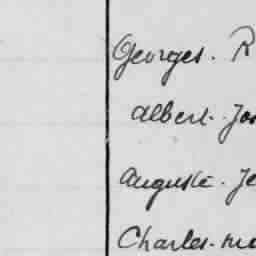 Georges. R
Albert. Jos
Auguste. Je
Charles. Ma